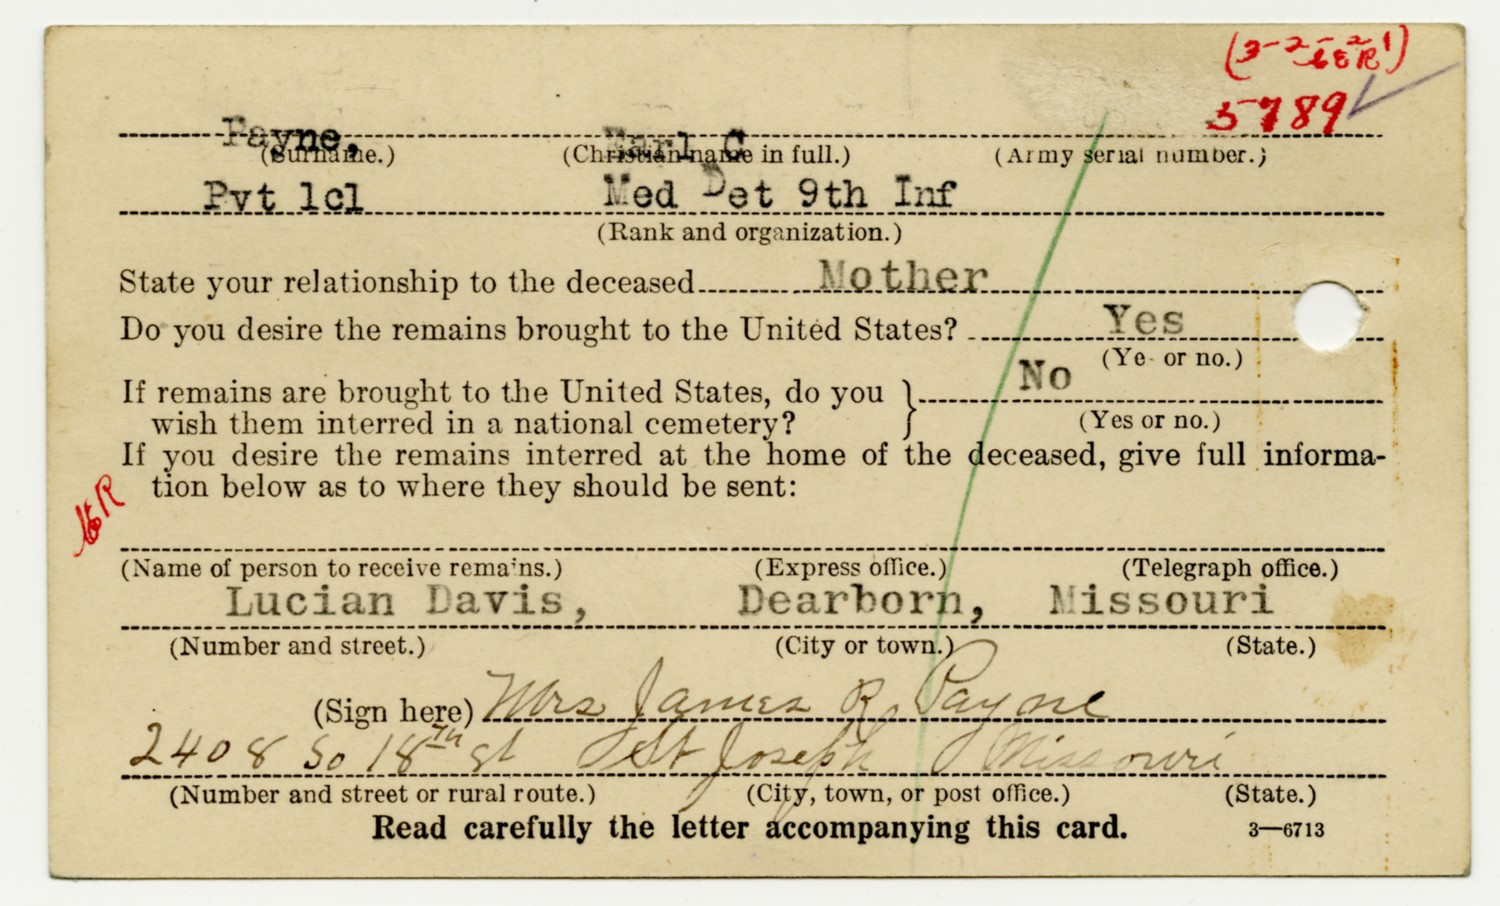 (3-2-2
GER')
5789
Payne, Earl C
(Surname.) (Christian name in full.) (Army serial number.)
Pvt 1cl Med Det 9th Inf
(Rank and organization.)
State your relationship to the deceased Mother
Do you desire the remains brought to the United States? Yes
(Yes or no.)
If remains are brought to the United States, do you No
wish them interred in a national cemetery? (Yes or no.)
If you desire the remains interred at the home of the deceased, give full informa-
tion below as to where they should be sent:
(Name of person to receive remains.) (Express office.) (Telegraph office.)
Lucian Davis, Dearborn, Missouri
(Number and street.) (City or town.) (State.)
(Sign here) Mrs James R. Payne
2408 So 18th st St Joseph Missouri
(Number and street or rural route.) (City, town, or post office.) (State.)
Read carefully the letter accompanying this card. 3—6713